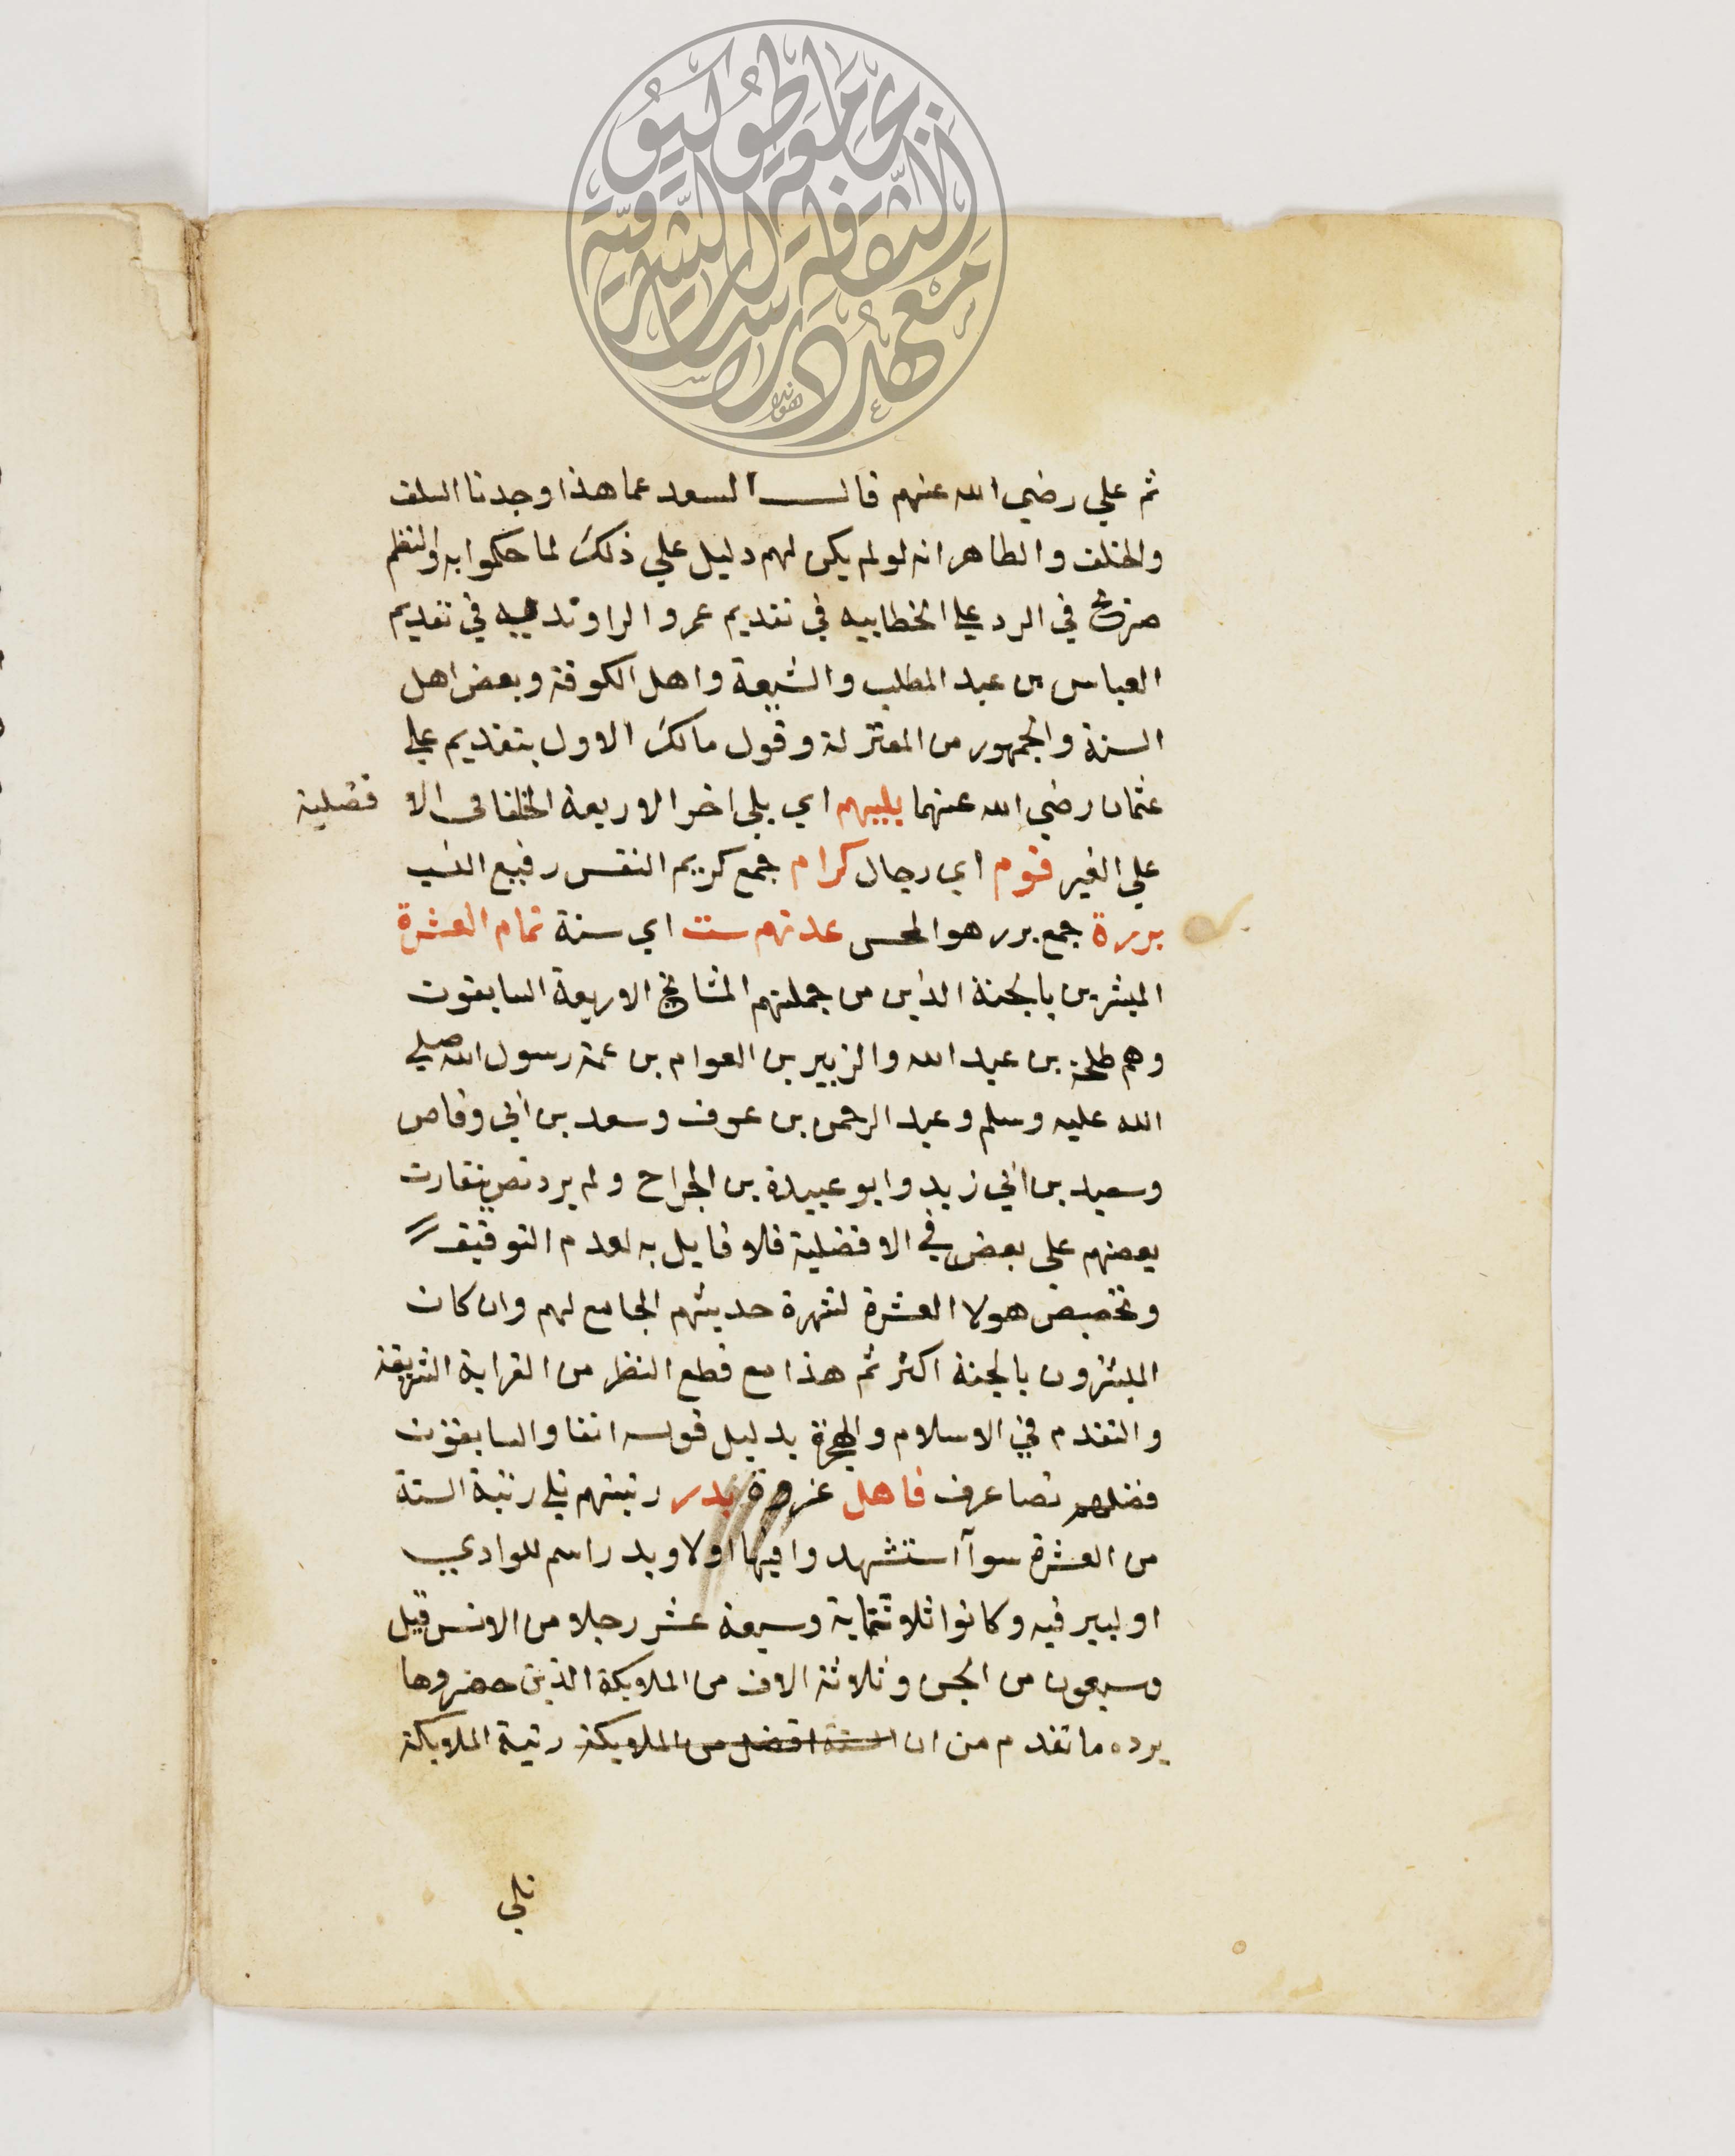 ثم علي رضي الله عنهم قال السعد عما هذا وجدنا السلف
والخلف والطاهر انه لو لم يكن لهم دليل علي ذلك لما حكموا به والنظم
صريح في الرد علي الخطابيه في تقديم عمر والراوندييه في تقديم
العباس بن عبد المطلب والشيعة واهل الكوفة وبعض اهل
السنة والجمهور من المعتزلة وقول مالك الاول بتقديم علي
عثمان رضي الله عنهما يليهم اي يلي اخر الاربعة الخلفا في الا فضلية
علي الغير قوم اي رجال كرام جمع كريم النفس رفيع النسب
بررة جمع برر هو المحسن عدتهم ست اي ستة تمام العشرة
المبشرين بالجنة الذين من جملتهم المشايخ الاربعة السابقون
وهم طلحة بن عبد الله والزبير بن العوام بن عمة رسول الله صلي
الله عليه وسلم وعبد الرحمن بن عوف وسعد بن ابي وقاص
وسعيد بن ابي زيد وابو عبيدة بن الجراح ولم يرد نص بتفاوت
بعضهم علي بعض في الافضلية فلا قايل به لعدم التوقيف
وتخصيص هولا العشرة لشهرة حديثهم الجامع لهم وان كان
المبشرون بالجنة اكثر ثم هذا مع قطع النظر من القرابة الشريفة
والتقدم في الاسلام والهجرة بدليل قوله انفا والسابقون
فضلهم نصا عرف فاهل غزوة بدر رتبتهم تلي رتبة الستة
من العشرة سوآ استشهدوا فيها اولا وبدر اسم للوادي
او لبير فيه وكانوا ثلاثماية وسبعة عشر رجلا من الانس قيل
وسبعون من الجن وثلاثة الاف من الملايكة الذين حضروها
يرده ما تقدم من ان الستة افضل من الملايكة رتبة الملايكة
تلي